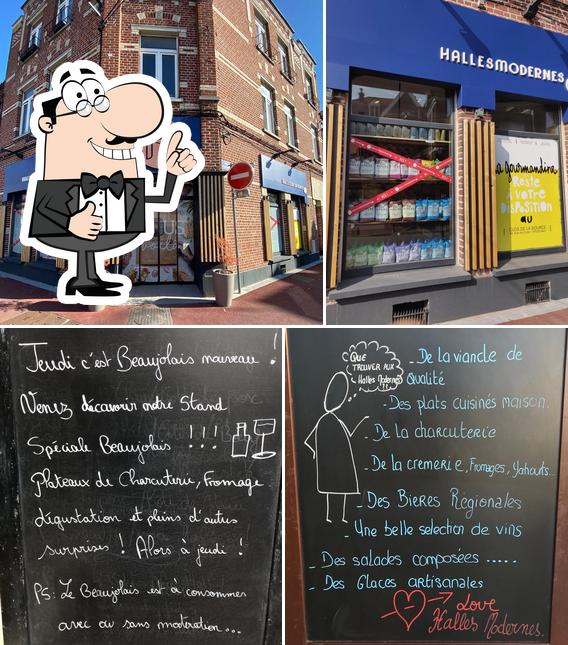 HALLESMODERNES
la gourmandine
Reste
à votre
Disposition
au
CLOS DE LA SOURCE
Jeudi c'est Beaujolais nouveau !
Venez découvrir notre Stand
Spéciale Beaujolais !!!
Plateaux de Charcuterie, Fromage
dégustation et pleins d'autres
surprises ! Alors à jeudi !
PS: Le Beaujolais est à consommer
avec ou sans modération...
QUE
TROUVER AUX
Halles Modernes
???
- De la viande de
Qualité
- Des plats cuisinés maison.
- De la charcuterie
- De la cremerie, Fromages, Yahourts...
- Des Bieres Régionales
- Une belle selection de vins
- Des salades composées .....
- Des Glaces artisanales
Love
Halles Modernes.